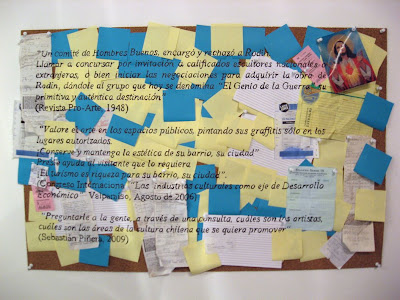 "Un comité de Hombres Buenos, encargó y rechazó a Rodin.
Llamar a concursar por invitación a calificados escultores nacionales o
extranjeros, o bien iniciar las negociaciones para adquirir la obra de
Rodin, dándole al grupo que hoy se denomina "El Genio de la Guerra" su
primitiva y auténtica destinación"
(Revista Pro-Arte, 1948)
"Valore el arte en los espacios públicos, pintando sus grafitis sólo en los
lugares autorizados.
Conserve y mantenga la estética de su barrio, su ciudad"
Preste ayuda al visitante que lo requiera
(El turismo es riqueza para su barrio, su ciudad".
(Congreso Internacional "Las industrias culturales como eje de Desarrollo
Económico" Valparaíso, Agosto de 2006)
"Preguntarle a la gente, a través de una consulta, cuáles son los artistas,
cuáles son las áreas de la cultura chilena que se quiera promover"
(Sebastián Piñera, 2009)